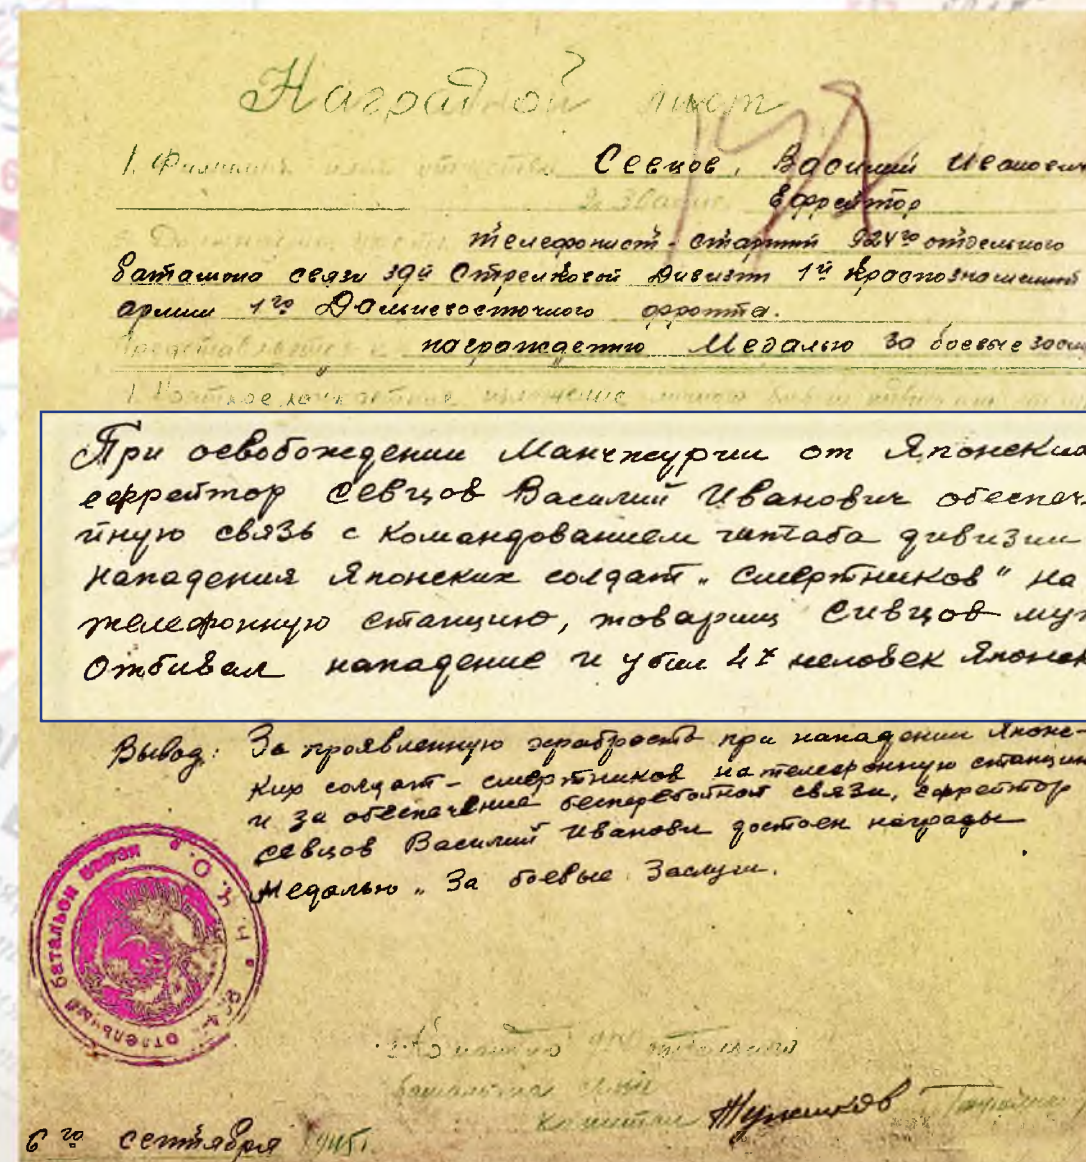 Наградной лист
1. Фамилия имя отчество Севцов, Василий Иванович
2. Звание Ефрейтор
3. Должность, часть телефонист-старший 924го отдельного
батальона связи 39й Стрелковой Дивизии 1й Краснознаменной
армии 1го Дальневосточного фронта.
Представляется к награждению Медалью за боевые заслу
1. Краткое конкретное изложение личного боевого
При освобождении Манчжурии от Японских
ефрейтор Севцов Василий Иванович обеспеч
йную связь с командованием штаба дивизии
Нападения Японских солдат „Смертников" на
телефонную станцию, товарищ Сивцов муж
Отбивал нападение и убил 4х человек Японск
Вывод: За проявленную храбрость при нападении Японс-
ких солдат-смертников на телефонную станцию
и за обеспечение бесперебойной связи, ефрейтор
Севцов Василий Иванови достоен награды
Медалью „За боевые Заслуги.
отдельный батальон связи
Н.К.О.
батальона связи
капитан
6го сентября 1945г.